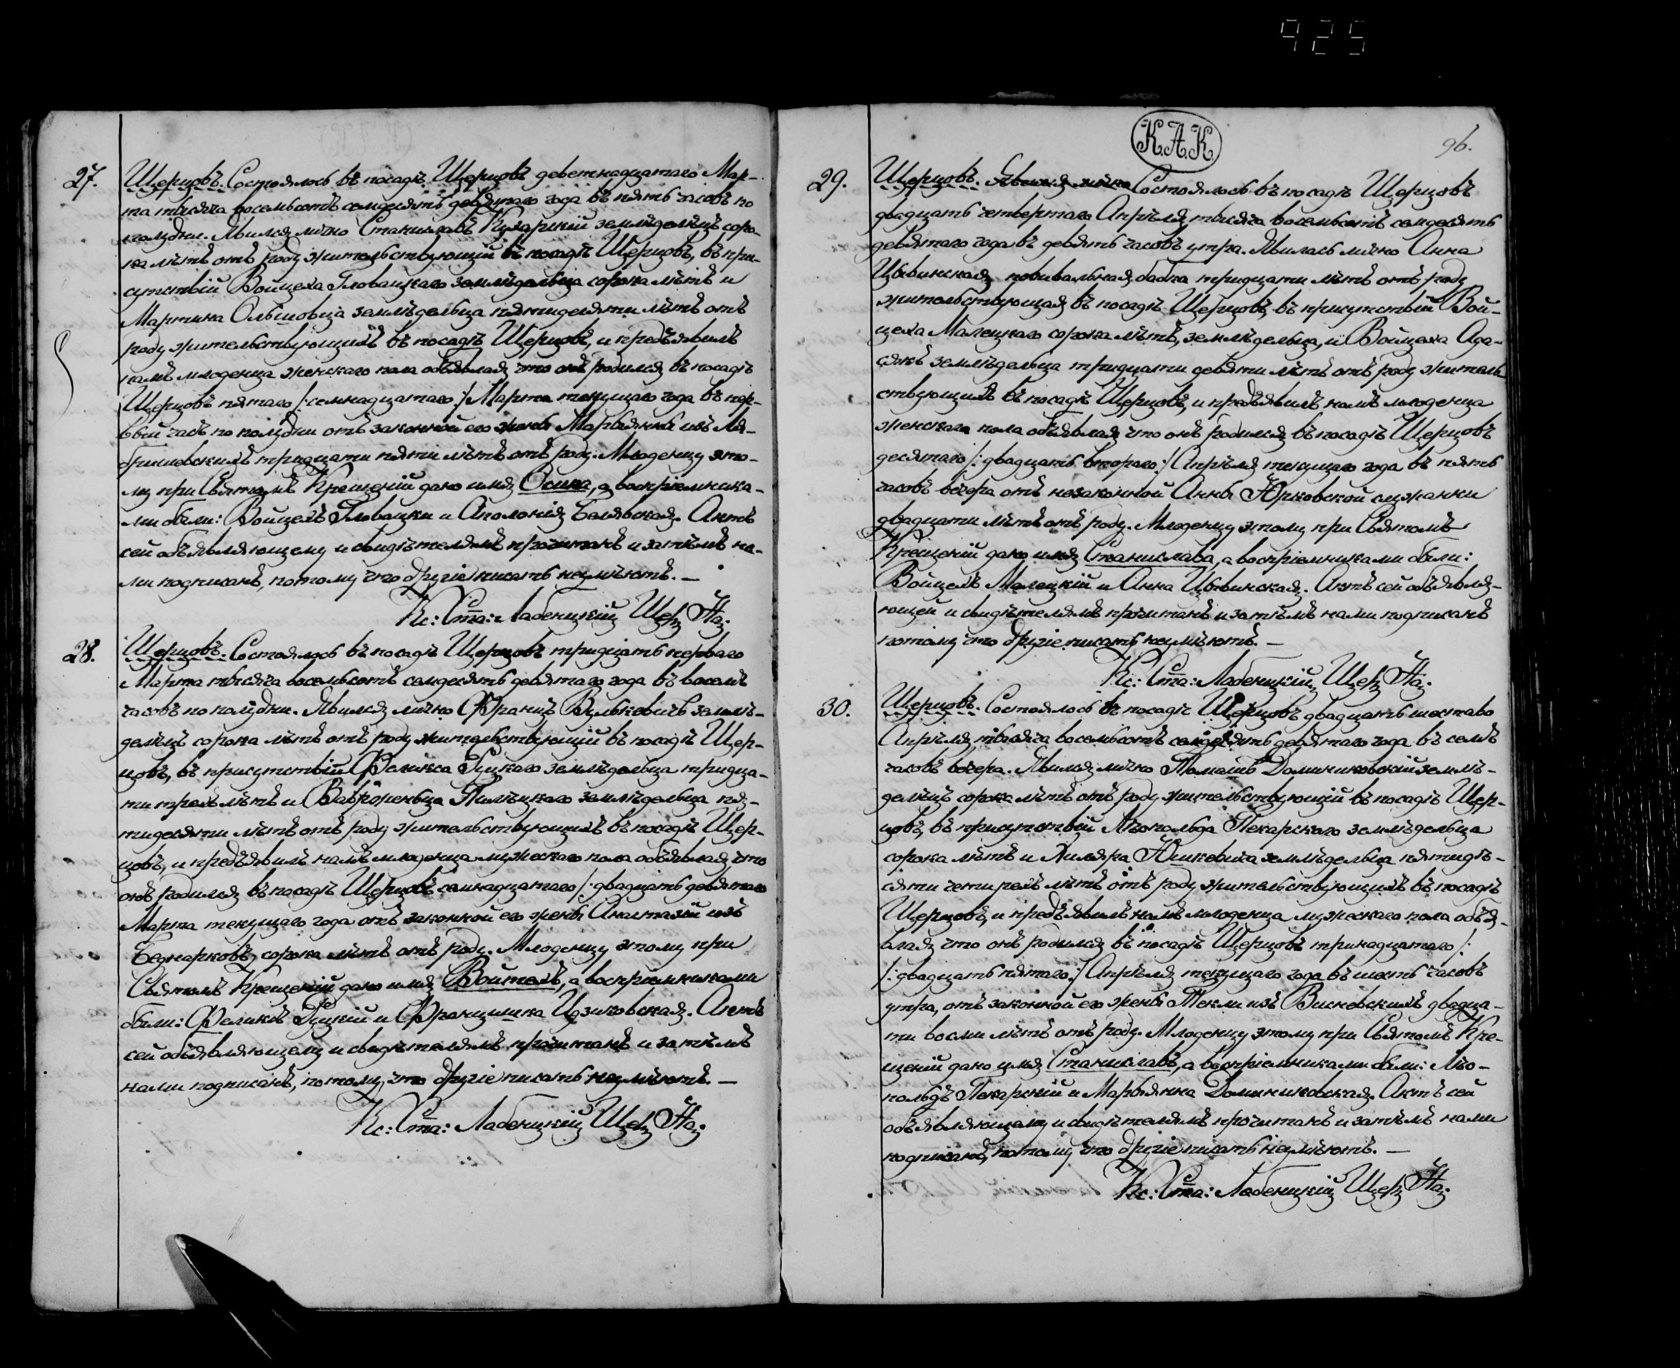 925
27.
Щерцовъ. Состоялось въ посадѣ Щерцовъ девятнадцатаго Мар-
та тысяча восемьсотъ семдесятъ девятаго года въ пять часовъ по
полудни. Явился лично Станиславъ земледѣлецъ соро-
ка лѣтъ отъ роду жительствующій въ посадѣ Щерцовъ, въ при-
сутствіи Войцеха Гловацкаго земледѣльца сорока лѣтъ и
Мартина земледѣльца пятидесяти лѣтъ отъ
роду жительствующихъ въ посадѣ Щерцовъ, и предъявилъ
намъ младенца женскаго пола объявляя что онъ родился въ посадѣ
Щерцовъ пятаго /:семнадцатаго:/ Марта текущаго года въ пер-
вый часъ по полудни отъ законной его жены Марьянны изъ
тридцати пяти лѣтъ отъ роду. Младенцу это-
му при Святомъ Крещеніи дано имя а воспріемника-
ми были: Войцехъ Гловацки и Аполонія Актъ
сей объявляющему и свидѣтелямъ прочитанъ и затѣмъ на-
ми подписанъ, потому что другіе писать неумѣютъ. —
Кс: Ста: Лабенцкій Щер. На:
28.
Щерцовъ. Состоялось въ посадѣ Щерцовъ тридцать перваго
Марта тысяча восемьсотъ семдесятъ девятаго года въ восемь
часовъ по полудни. Явился лично Францъ земле-
дѣлецъ сорока лѣтъ отъ роду жительствующій въ посадѣ Щер-
цовъ, въ присутствіи Феликса земледѣльца тридца-
ти трехъ лѣтъ и земледѣльца пя-
тидесяти лѣтъ отъ роду жительствующихъ въ посадѣ Щер-
цовъ, и предъявилъ намъ младенца мужескаго пола объявляя что
онъ родился въ посадѣ Щерцовъ семнадцатаго /:двадцать девятаго
Марта текущаго года отъ законной его жены Анастазіи изъ
Беднарковъ, сорока лѣтъ отъ роду. Младенцу этому при
Святомъ Крещеніи дано имя Войтехъ, а воспріемниками
были: Феликсъ и Францишка Актъ
сей объявляющему и свидѣтелямъ прочитанъ и затѣмъ
нами подписанъ, потому что другіе писать неумѣютъ. —
Кс: Ста: Лабенцкій Щер. На:
КАК
96.
29.
Щерцовъ. Состоялось въ посадѣ Щерцовъ
двадцать четвертаго Апрѣля тысяча восемьсотъ семдесятъ
девятаго года въ девять часовъ утра. Явилась лично Анна
повивальная бабка тридцати лѣтъ отъ роду
жительствующая въ посадѣ Щерцовъ, въ присутствіи Вой-
цеха Малецкаго сорока лѣтъ, земледѣльца, и Войцеха Ада-
земледѣльца тридцати девяти лѣтъ отъ роду житель-
ствующихъ въ посадѣ Щерцовъ, и предъявилъ намъ младенца
женскаго пола объявляя что онъ родился въ посадѣ Щерцовъ
десятаго /:двадцать втораго:/ Апрѣля текущаго года въ пять
часовъ вечера отъ незаконной Анны Юрковской служанки
двадцати лѣтъ отъ роду. Младенцу этому при Святомъ
Крещеніи дано имя Станислава, а воспріемниками были:
Войцехъ Малецкій и Анна Актъ сей объявля-
ющей и свидѣтелямъ прочитанъ и затѣмъ нами подписанъ
потому что другіе писать неумѣютъ. —
Кс: Ста: Лабенцкій Щер. На:
30.
Щерцовъ. Состоялось въ посадѣ Щерцовъ двадцать шестаго
Апрѣля тысяча восемьсотъ семдесятъ девятаго года въ семь
часовъ вечера. Явился лично Томашъ Доминиковскій земле-
дѣлецъ сорока лѣтъ отъ роду жительствующій въ посадѣ Щер-
цовъ, въ присутствіи Леопольда Пекарскаго земледѣльца
сорока лѣтъ и земледѣльца пятиде-
сяти четырехъ лѣтъ отъ роду жительствующихъ въ посадѣ
Щерцовъ, и предъявилъ намъ младенца мужескаго пола объя-
вляя что онъ родился въ посадѣ Щерцовъ тринадцатаго /:
/:двадцать пятаго:/ Апрѣля текущаго года въ шесть часовъ
утра, отъ законной его жены Текли изъ Висневскихъ двадца-
ти восми лѣтъ отъ роду. Младенцу этому при Святомъ Кре-
щеніи дано имя Станиславъ, а воспріемниками были: Лео-
польдъ Пекарскій и Марьянна Доминиковская. Актъ сей
объявляющему и свидѣтелямъ прочитанъ и затѣмъ нами
подписанъ, потому что другіе писать неумѣютъ. —
Кс: Ста: Лабенцкій Щер. На: